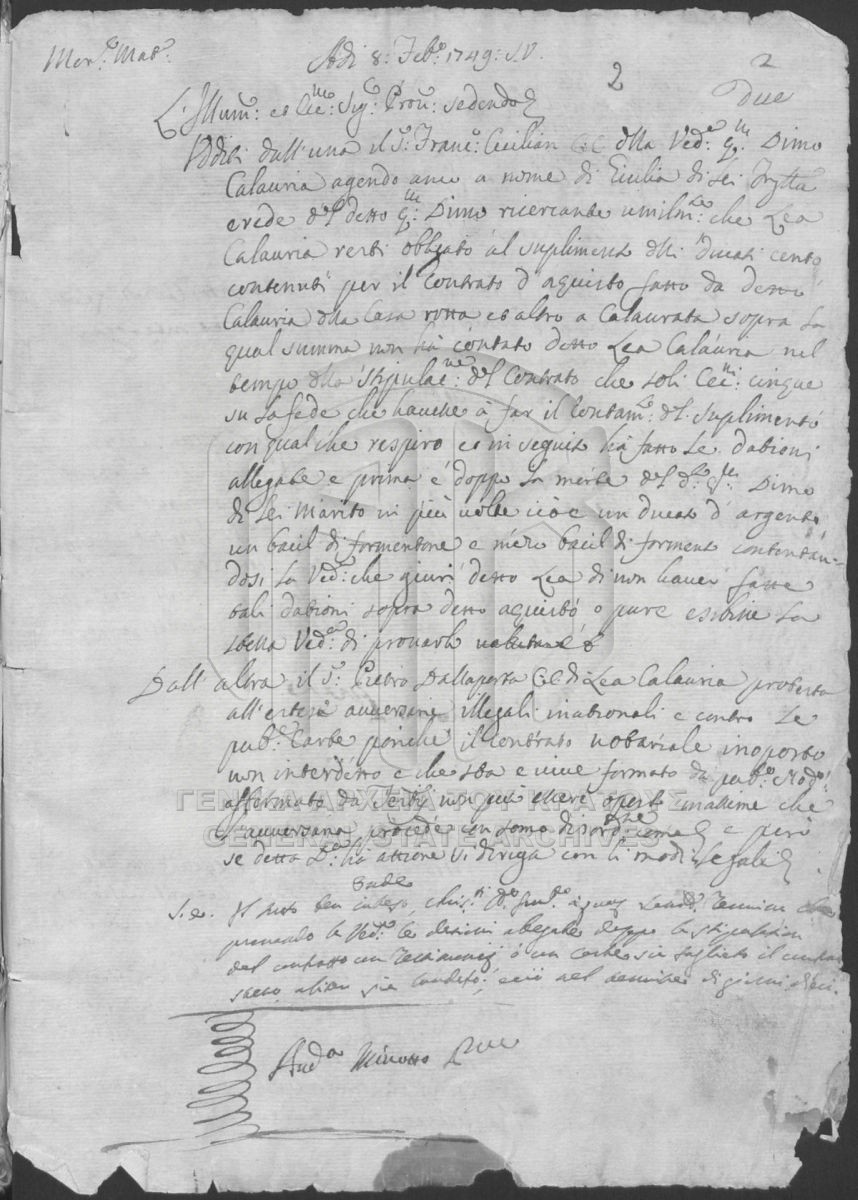 Adi 8: Feb:º 1749: S.V.
2 2
due
L'Illum:º et Ecc:mo Sig:r Prov:r sedendo
Udditi dall'una il S:r Franc:º Cecilian C:C della Ved:a q:m Dimo
Calauria agendo anco a nome di Giulia di lei figlia
erede del detto q:m Dimo ricercante umilm:te che Lea
Calauria resti obligato al supliment delli ducati cento
contenuti per il Contrato d'aquisto fatto da detto
Calauria della Casa rotta et altro a Calaurata sopra la
qual summa non hà contato detto Lea Calauria nel
tempo della stipulac:ne del Contrato che soli Cec:ni cinque
su la fede che havesse à far il Contam:to del suplimento
con qualche respiro et in seguito hà fatto le dationi
allegate e prima e doppo la morte del d:to q:m Dimo
di lei Marito in più volte cioè un ducato d'argento
un bacil di formentone e mezo bacil di formento contentan-
dosi la Ved:a che giuri detto Lea di non haver fatte
tali dationi sopra detto aquisto o pure esibisse la
stessa Ved:a di provarle
Dall'altra il S:r Pietro Dallaporta C:C di Lea Calauria protesta
all'estese avversarie illegali irrationali e contro le
pub:e Carte poichè il Contrato notariale inoposto
non interdetto e che sta e vive formato da pub:º Nod:º
affermato da Testij non può essere oposto massime che
l'avversaria procede con somo disordine e però
se detta D:a hà attione si diriga con li modi legali
S. E.
provando la Ved:a le dationi allegate doppo la stipulation
del contratto con Testimonij
nel termine di giorni dieci.
And:a Minotto Prov:
ΓΕΝΙΚΑ ΑΡΧΕΙΑ ΤΟΥ ΚΡΑΤΟΥΣ
GENERAL STATE ARCHIVES